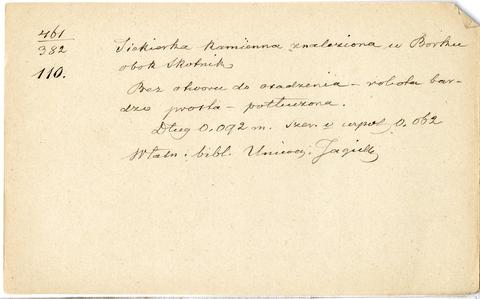 461
382
110.
Siekierka kamienna znaleziona w Borku
obok Skotnik
Bez otworu do osadzenia – robota bar-
dzo prosta – potłuczona.
Dług 0.092 m. szer. w 0.062
Własn. bibl. Uniwer. Jagiell.